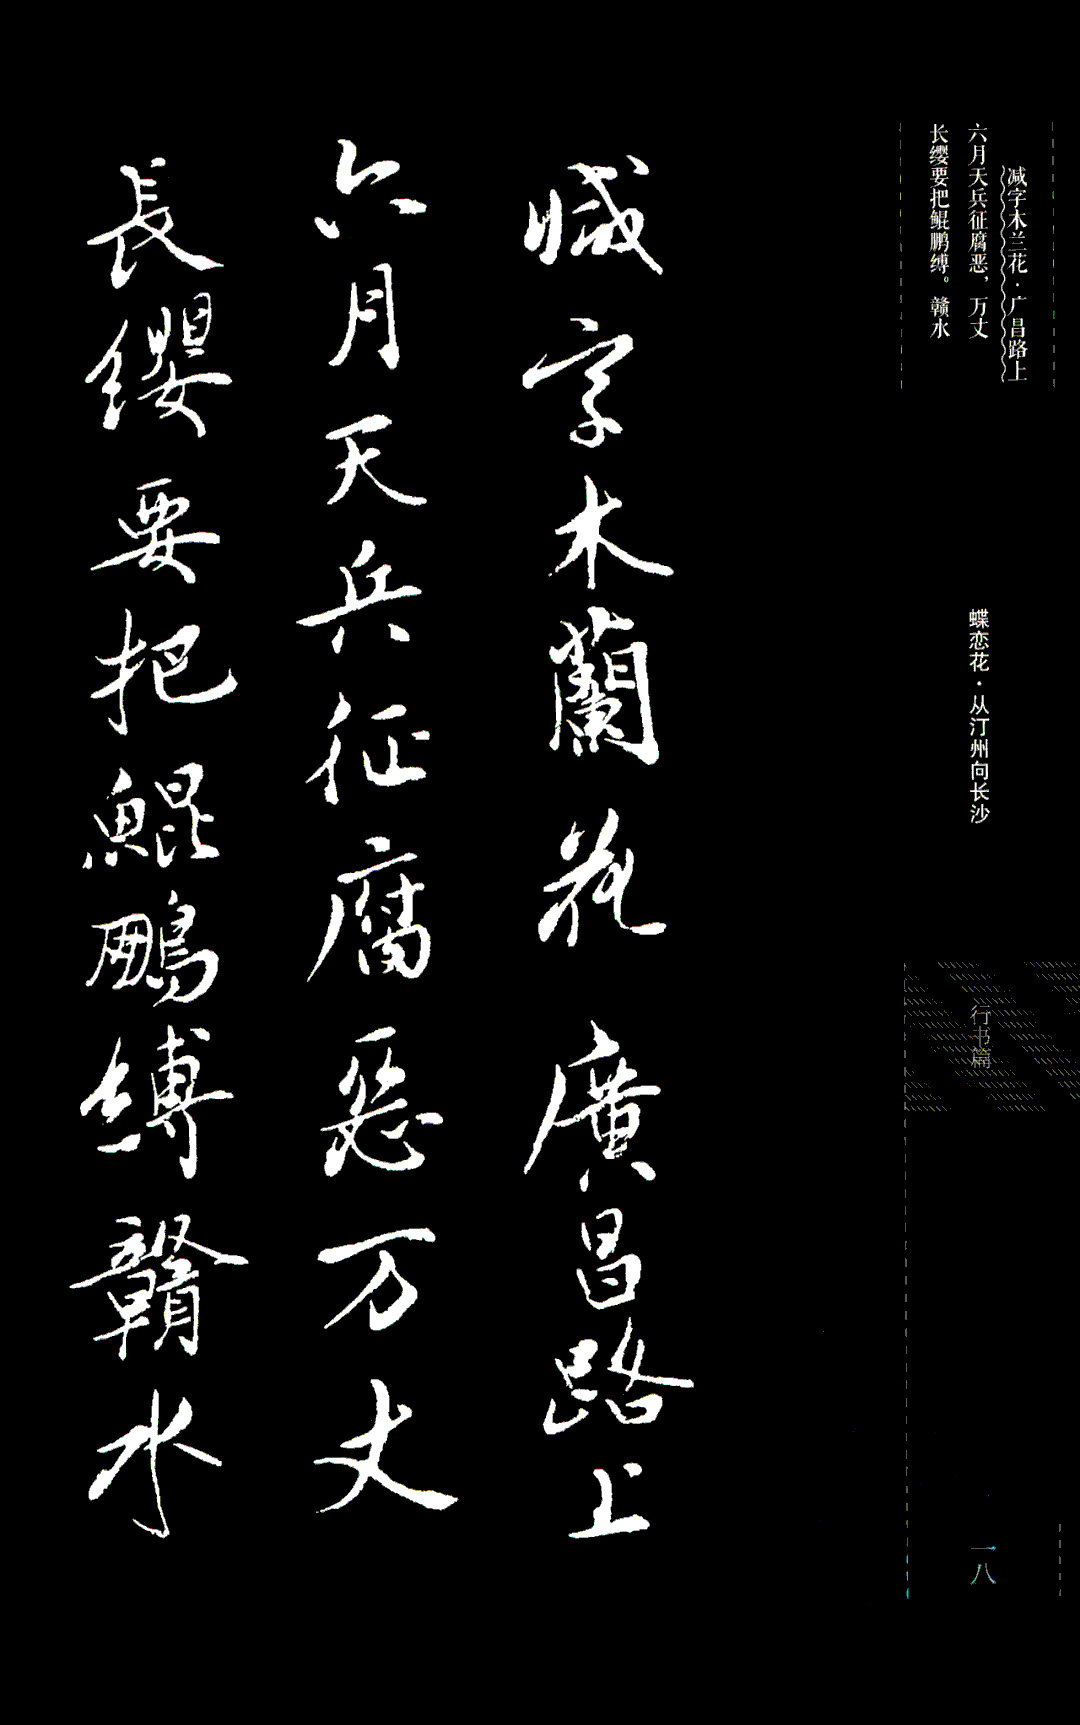 减字木兰花·广昌路上
六月天兵征腐恶，万丈
长缨要把鲲鹏缚。赣水
蝶恋花·从汀州向长沙
行书篇
一八
减字木蘭花 廣昌路上
六月天兵征腐惡万丈
長纓要把鯤鵬縛贛水